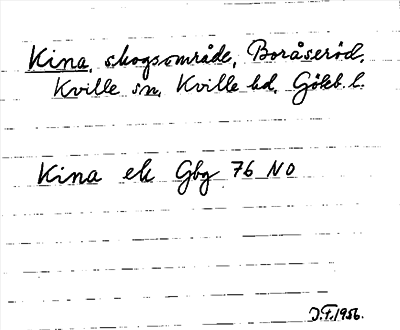 Kina, skogsområde, Boråseröd,
Kville sn, Kville hd, Götеb. l.
Kina ek Gbg 76 NO
J.F. 1956.